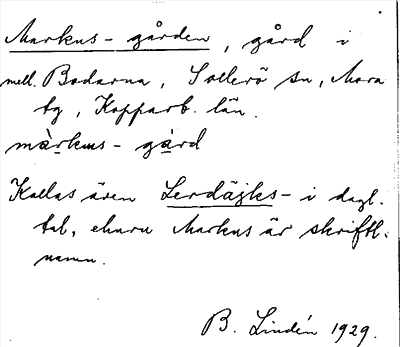 Markus-gården, gård i
mell. Bodarna, Sollerö sn, Mora
tg, Kopparb. län.
màrkus-gàrd
Kallas även Lerdäjks- i dagl.
tal, ehuru Markus är skriftl.
namn.
B. Lindén 1929.